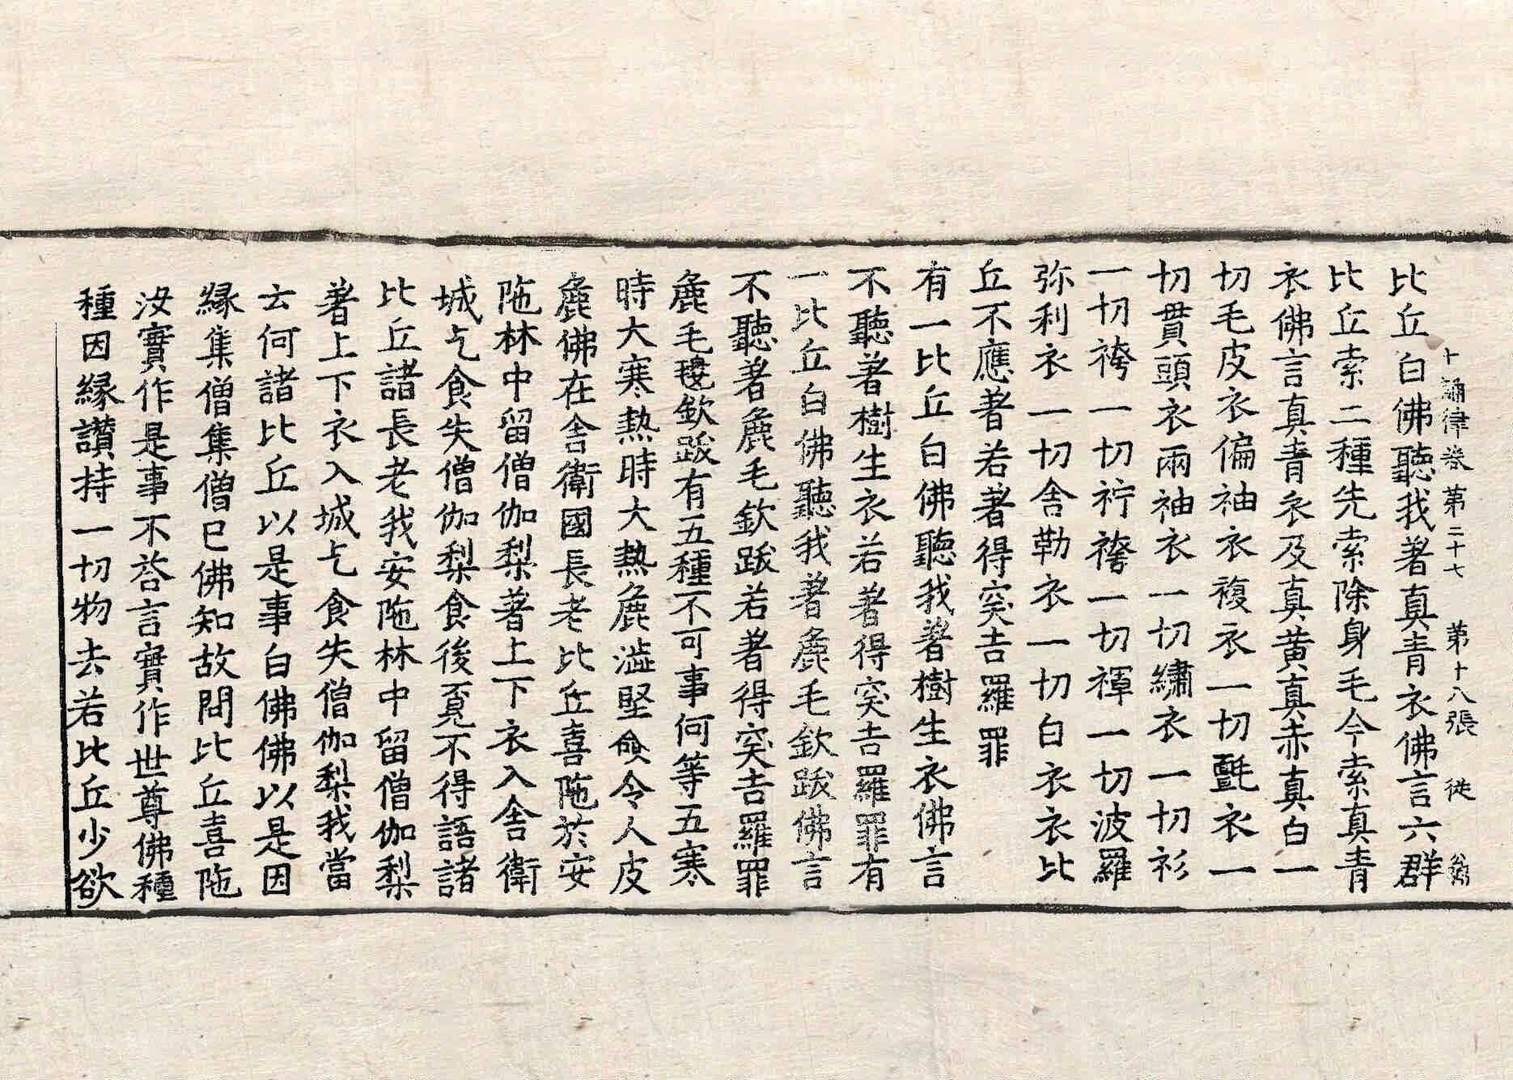 十誦律卷 第二十七 第十八張 徙
比丘白佛聽我著真青衣佛言六群
比丘索二種先索除身毛今索真青
衣佛言真青衣及真黄真赤真白一
切毛皮衣偏袖衣複衣一切氎衣一
切貫頭衣兩袖衣一切繡衣一切衫
一切袴一切袸袴一切褌一切波羅
弥利衣一切舍勒衣一切白衣衣比
丘不應著若著得突吉羅罪
有一比丘白佛聽我著樹生衣佛言
不聽著樹生衣若著得突吉羅罪有
一比丘白佛聽我著麁毛欽跋佛言
不聽著麁毛欽跋若著得突吉羅罪
麁毛毯欽跋有五種不可事何等五寒
時大寒熱時大熱麁澁堅㑒令人皮
麁佛在舍衛國長老比丘喜陁於安
陁林中留僧伽梨著上下衣入舍衛
城乞食失僧伽梨食後覔不得語諸
比丘諸長老我安陁林中留僧伽梨
著上下衣入城乞食失僧伽梨我當
云何諸比丘以是事白佛佛以是因
緣集僧集僧已佛知故問比丘喜陁
汝實作是事不荅言實作世尊佛種
種因緣讃持一切物去若比丘少欲